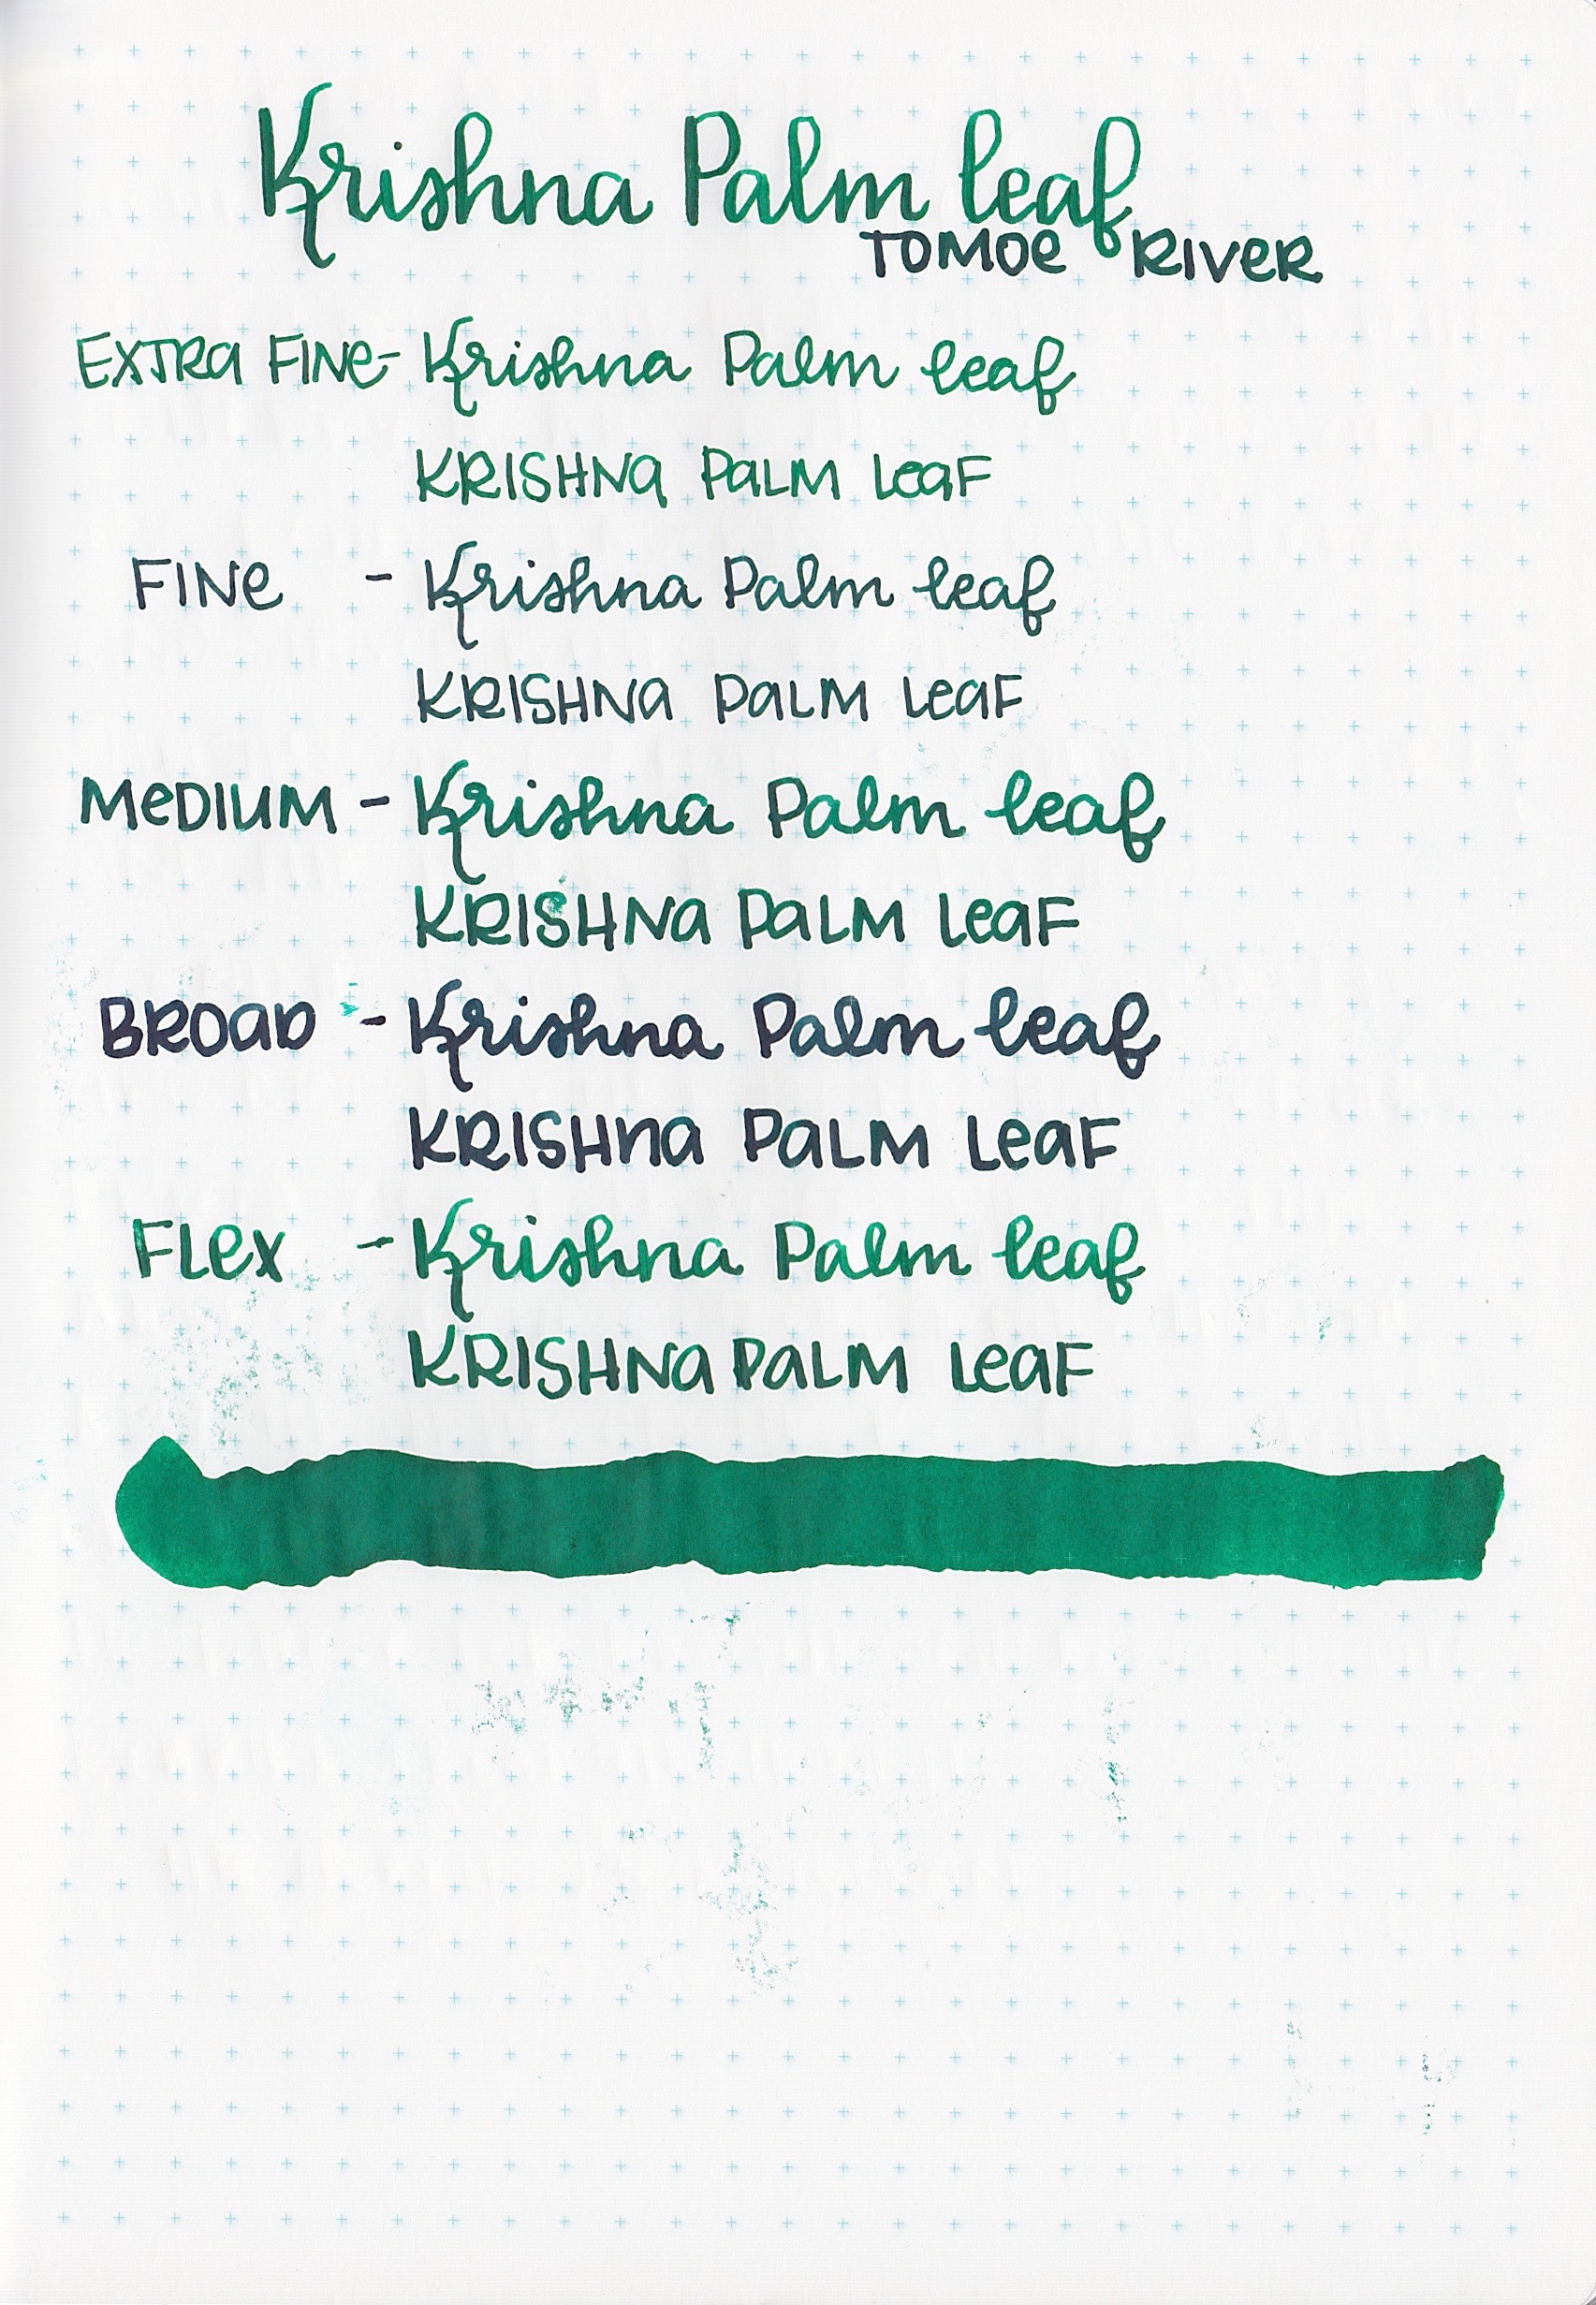 Krishna Palm leaf
TOMOE RIVER
EXTRA FINE - Krishna Palm leaf
KRISHNA PALM LEAF
FINE - Krishna Palm leaf
KRISHNA PALM LEAF
MEDIUM - Krishna Palm leaf
KRISHNA PALM LEAF
BROAD - Krishna Palm leaf
KRISHNA PALM LEAF
FLEX - Krishna Palm leaf
KRISHNA PALM LEAF